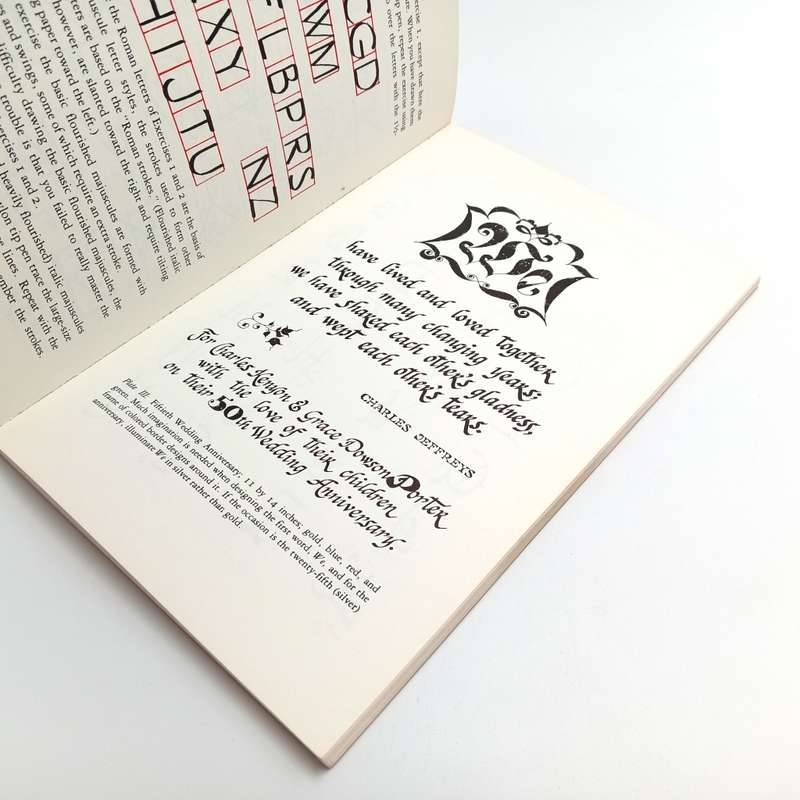 Exercise 1, except that here the
When you have drawn them
tip pen, repeat the exercise using
over the letters with the 1½-
CGD
WM
FLBPRS
XY NZ
HIJTU
the Roman letters of Exercises 1 and 2 are the basis of
letter styles, the strokes used to form other
are based on the "Roman strokes." (Flourished italic
however, are slanted toward the right and require tilting
paper toward the left.)
exercise the basic flourished majuscules are formed with
and swings, some of which require an extra stroke.
difficulty drawing the basic flourished majuscules, the
trouble is that you failed to really master the
Exercises 1 and 2.
heavily flourished) italic majuscules
nylon tip pen trace the large-size
lines. Repeat with the
the strokes.
We
have lived and loved together
through many changing years;
we have shared each other's gladness,
and wept each other's tears.
CHARLES JEFFREYS
For Charles Kenyon & Grace Dowson Porter
with the love of their children
on Their 50th Wedding Anniversary.
Plate III. Fiftieth Wedding Anniversary, 11 by 14 inches; gold, blue, red, and
green. Much imagination is needed when designing the first word, We, and for the
frame of colored border designs around it. If the occasion is the twenty-fifth (silver)
anniversary, illuminate We in silver rather than gold.